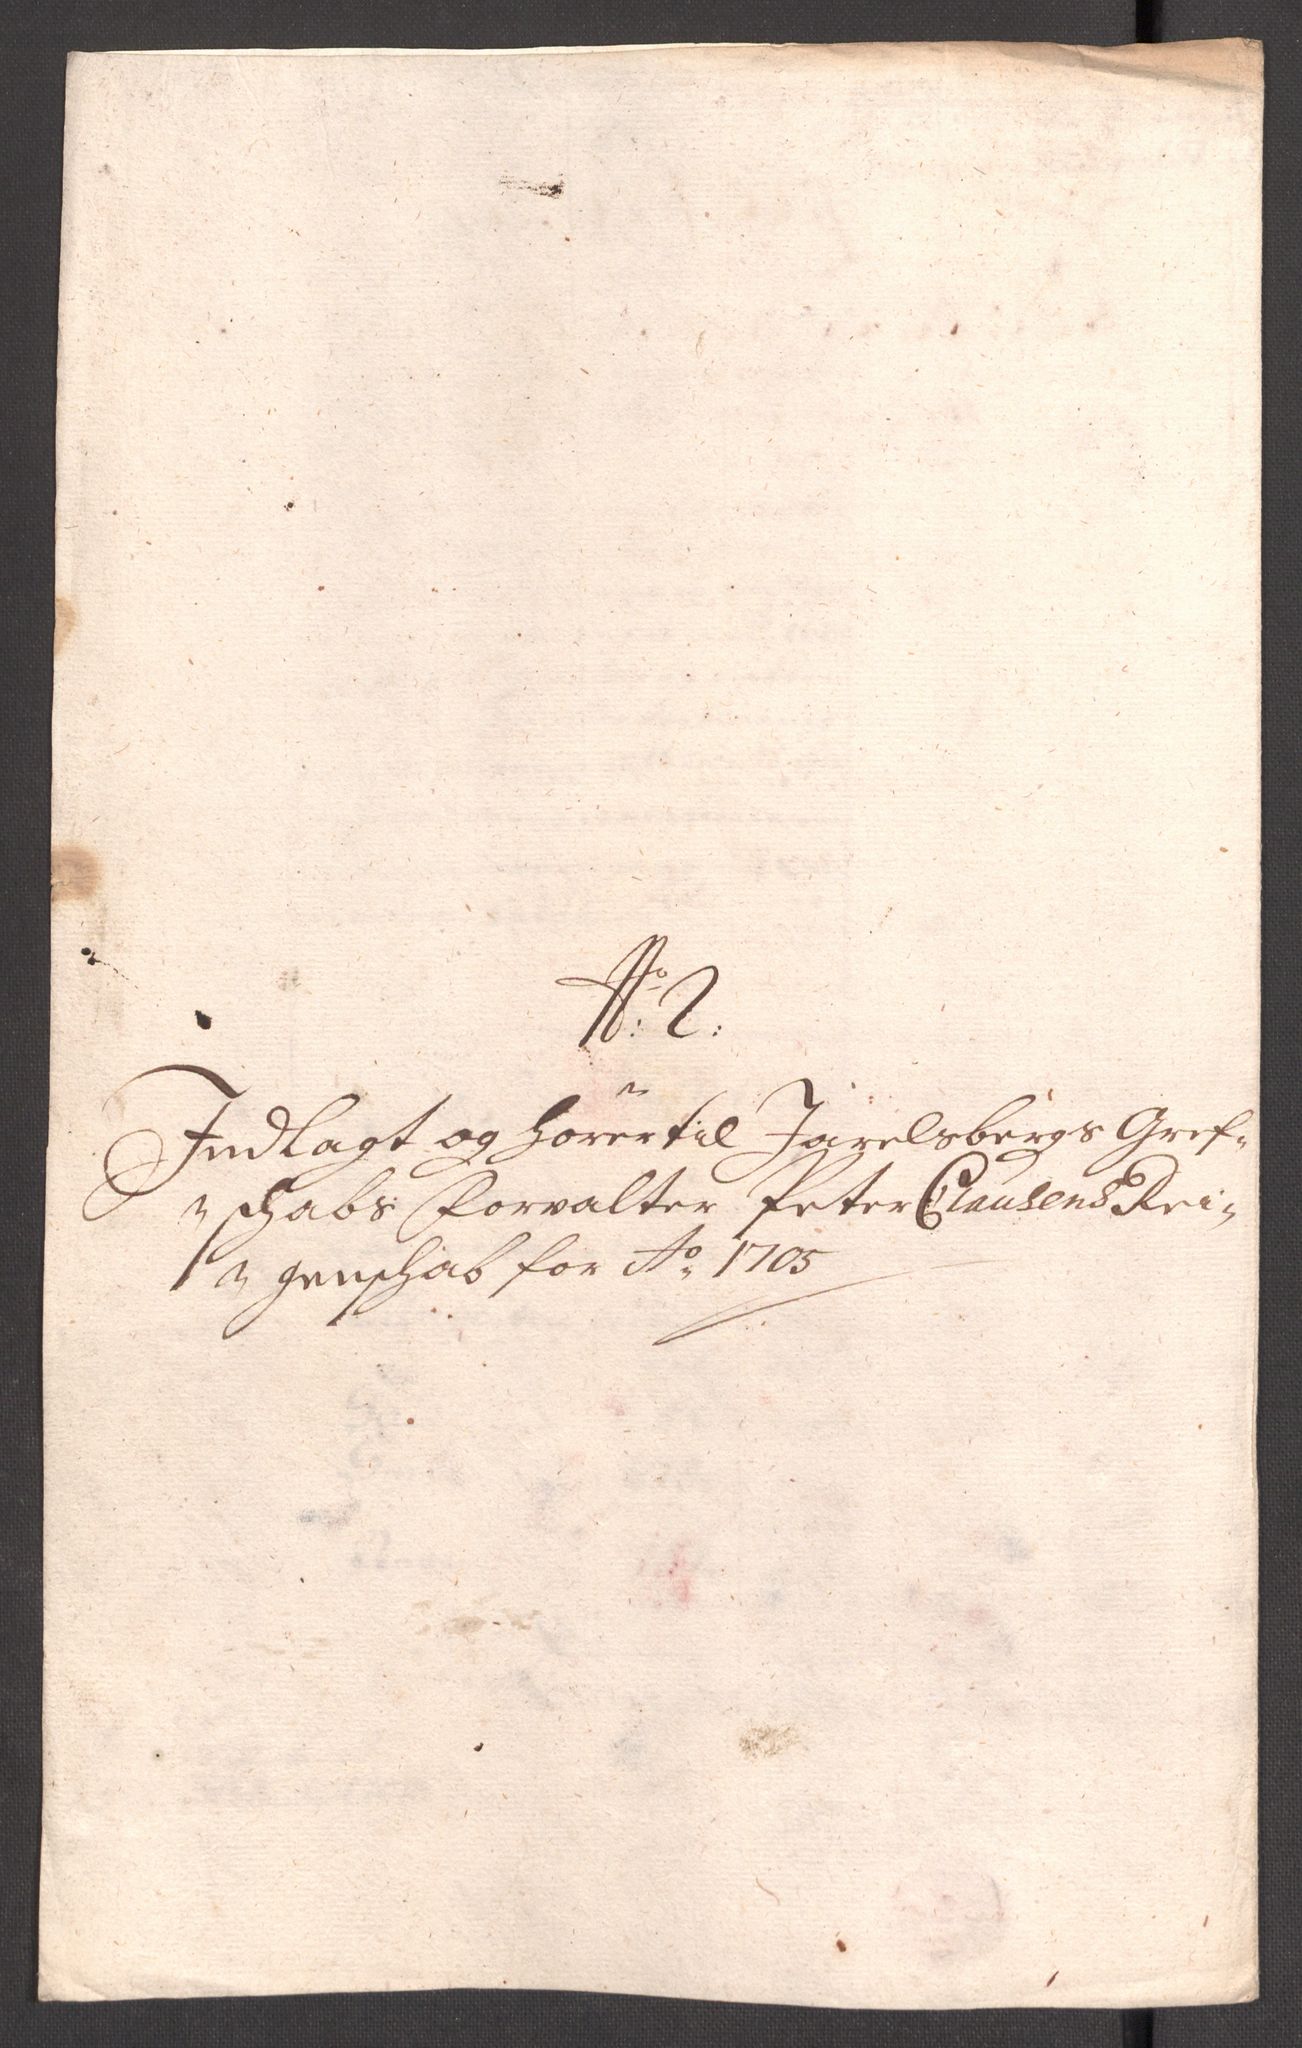 No: 2:
Indlagt og hörer til Jarelsbergs Gref-
schabs Forvalter Peter Clausens Rei-
genschab for Ao 1705